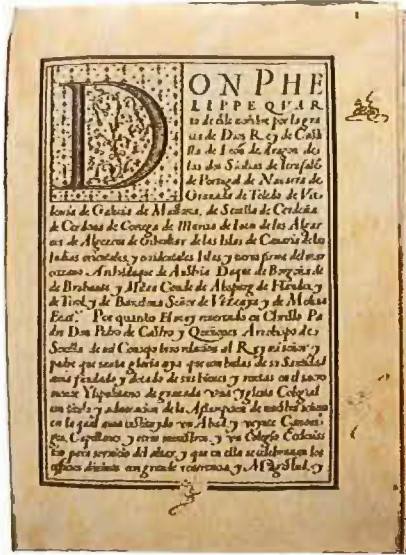 DON PHE
LIPPE QVAR
to de este nombre por la gra
cia de Dios Rey de Casti
lla de León de Aragon de
las dos Sicilias de Ierusalé
de Portugal de Navarra de
Granada de Toledo de Va
lencia de Galicia de Mallorca, de Sevilla de Cerdeña
de Cordova de Corcega de Murcia de Iaen de los Algar
ves de Algecira de Gibraltar de las Islas de Canaria de las
Indias orientales, y occidentales Islas y tierra firme del mar
oceano. Archiduque de Austria Duque de Borgoña de
de Brabante y Milan Conde de Abspurg de Flandes y
de Tirol, y de Barcelona Señor de Vizcaya y de Molina
Por quanto el muy reverendo en Christo Pa
dre Don Pedro de Castro y Quiñones Arzobispo de
Sevilla de mi Consejo hizo relacion al Rey mi señor y
padre que santa gloria aya que con bulas de su Santidad
avia fundado y dotado de sus bienes y rentas en el sacro
monte Ylipulitano de granada una Yglesia Colegial
en la qual avia instituydo un Abad, y veynte Canoni
gos, Capellanes y otros ministros, y un Colegio Ecclesias
tico para servicio del altar, y que en ella se celebravan los
officios divinos con grande reverencia, y